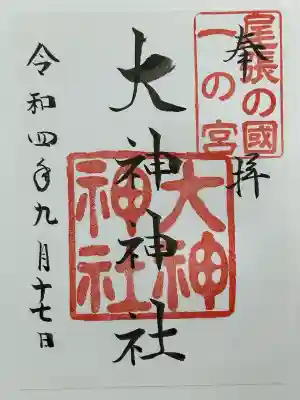 奉拝
尾張の國
一の宮
大神神社
大神
神社
令和四年九月十七日